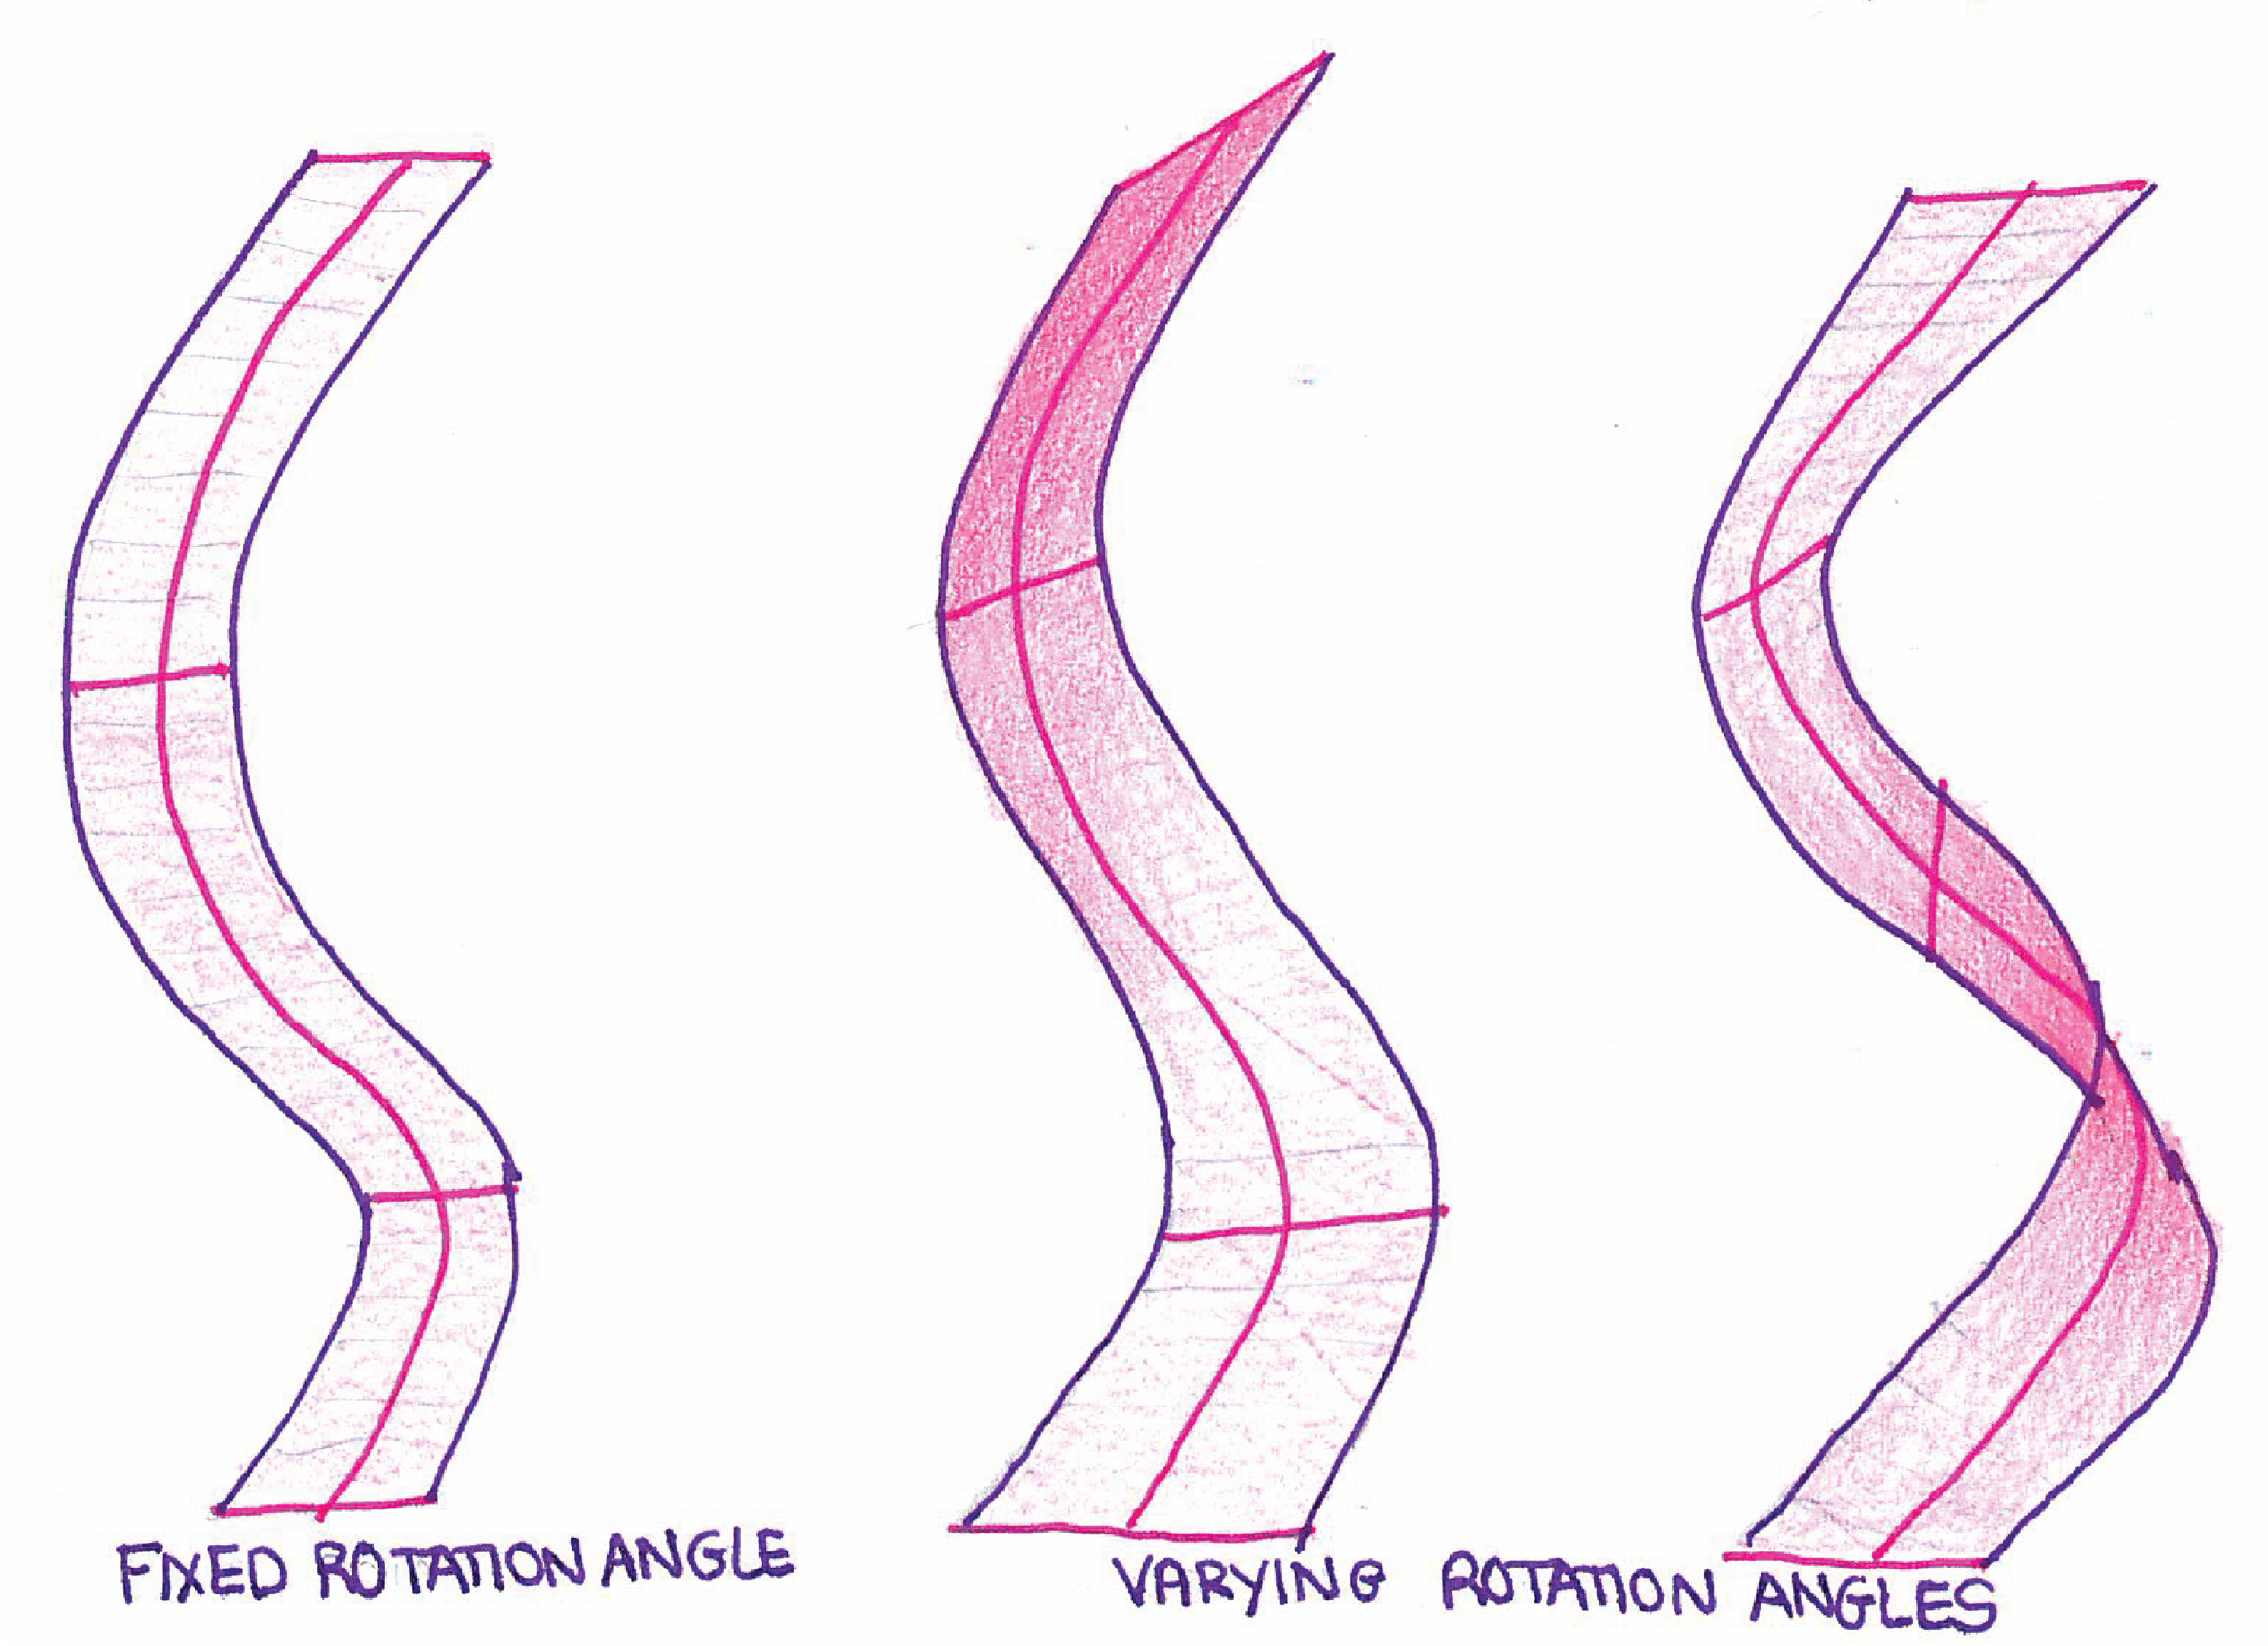 FIXED ROTATION ANGLE
VARYING ROTATION ANGLES